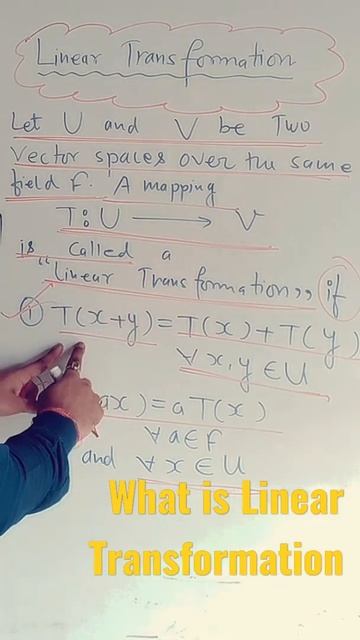 Linear Transformation
Let U and V be Two
Vector spaces over the same
field F. A mapping
T: U ⟶ V
is called a
"linear Transformation,, if
① T(x+y) = T(x) + T(y)
∀ x, y ∈ U
ax) = a T(x)
∀ a ∈ F
and ∀ x ∈ U
What is Linear
Transformation